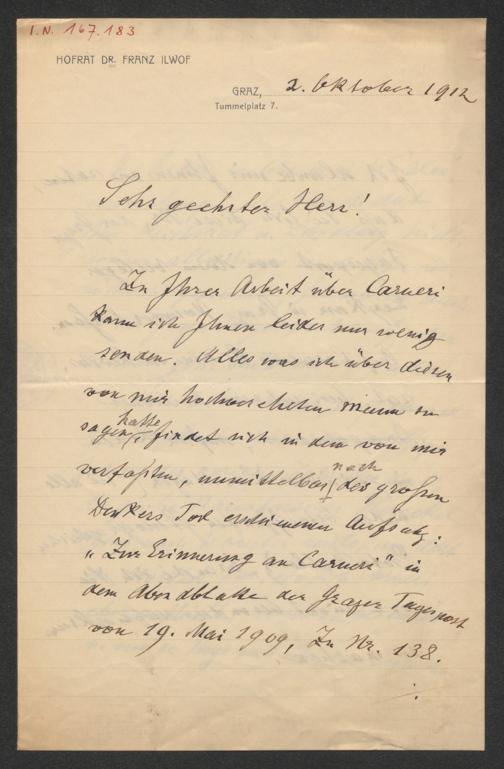 I.N. 167.183
HOFRAT DR. FRANZ ILWOF
GRAZ, 2. Oktober 1912
Tummelplatz 7.
Sehr geehrter Herr!
Zu Ihrer Arbeit über Carneri
kann ich Ihnen leider nur wenig
senden. Alles was ich über diesen
von mir hochverehrten Mann zu
sagen hatte, findet sich in dem von mir
verfaßten, unmittelbar nach des großen
Denkers Tod erschienenen Aufsatz:
„Zur Erinnerung an Carneri" in
dem Abendblatte der Grazer Tagespost
von 19. Mai 1909, Zu Nr. 138.